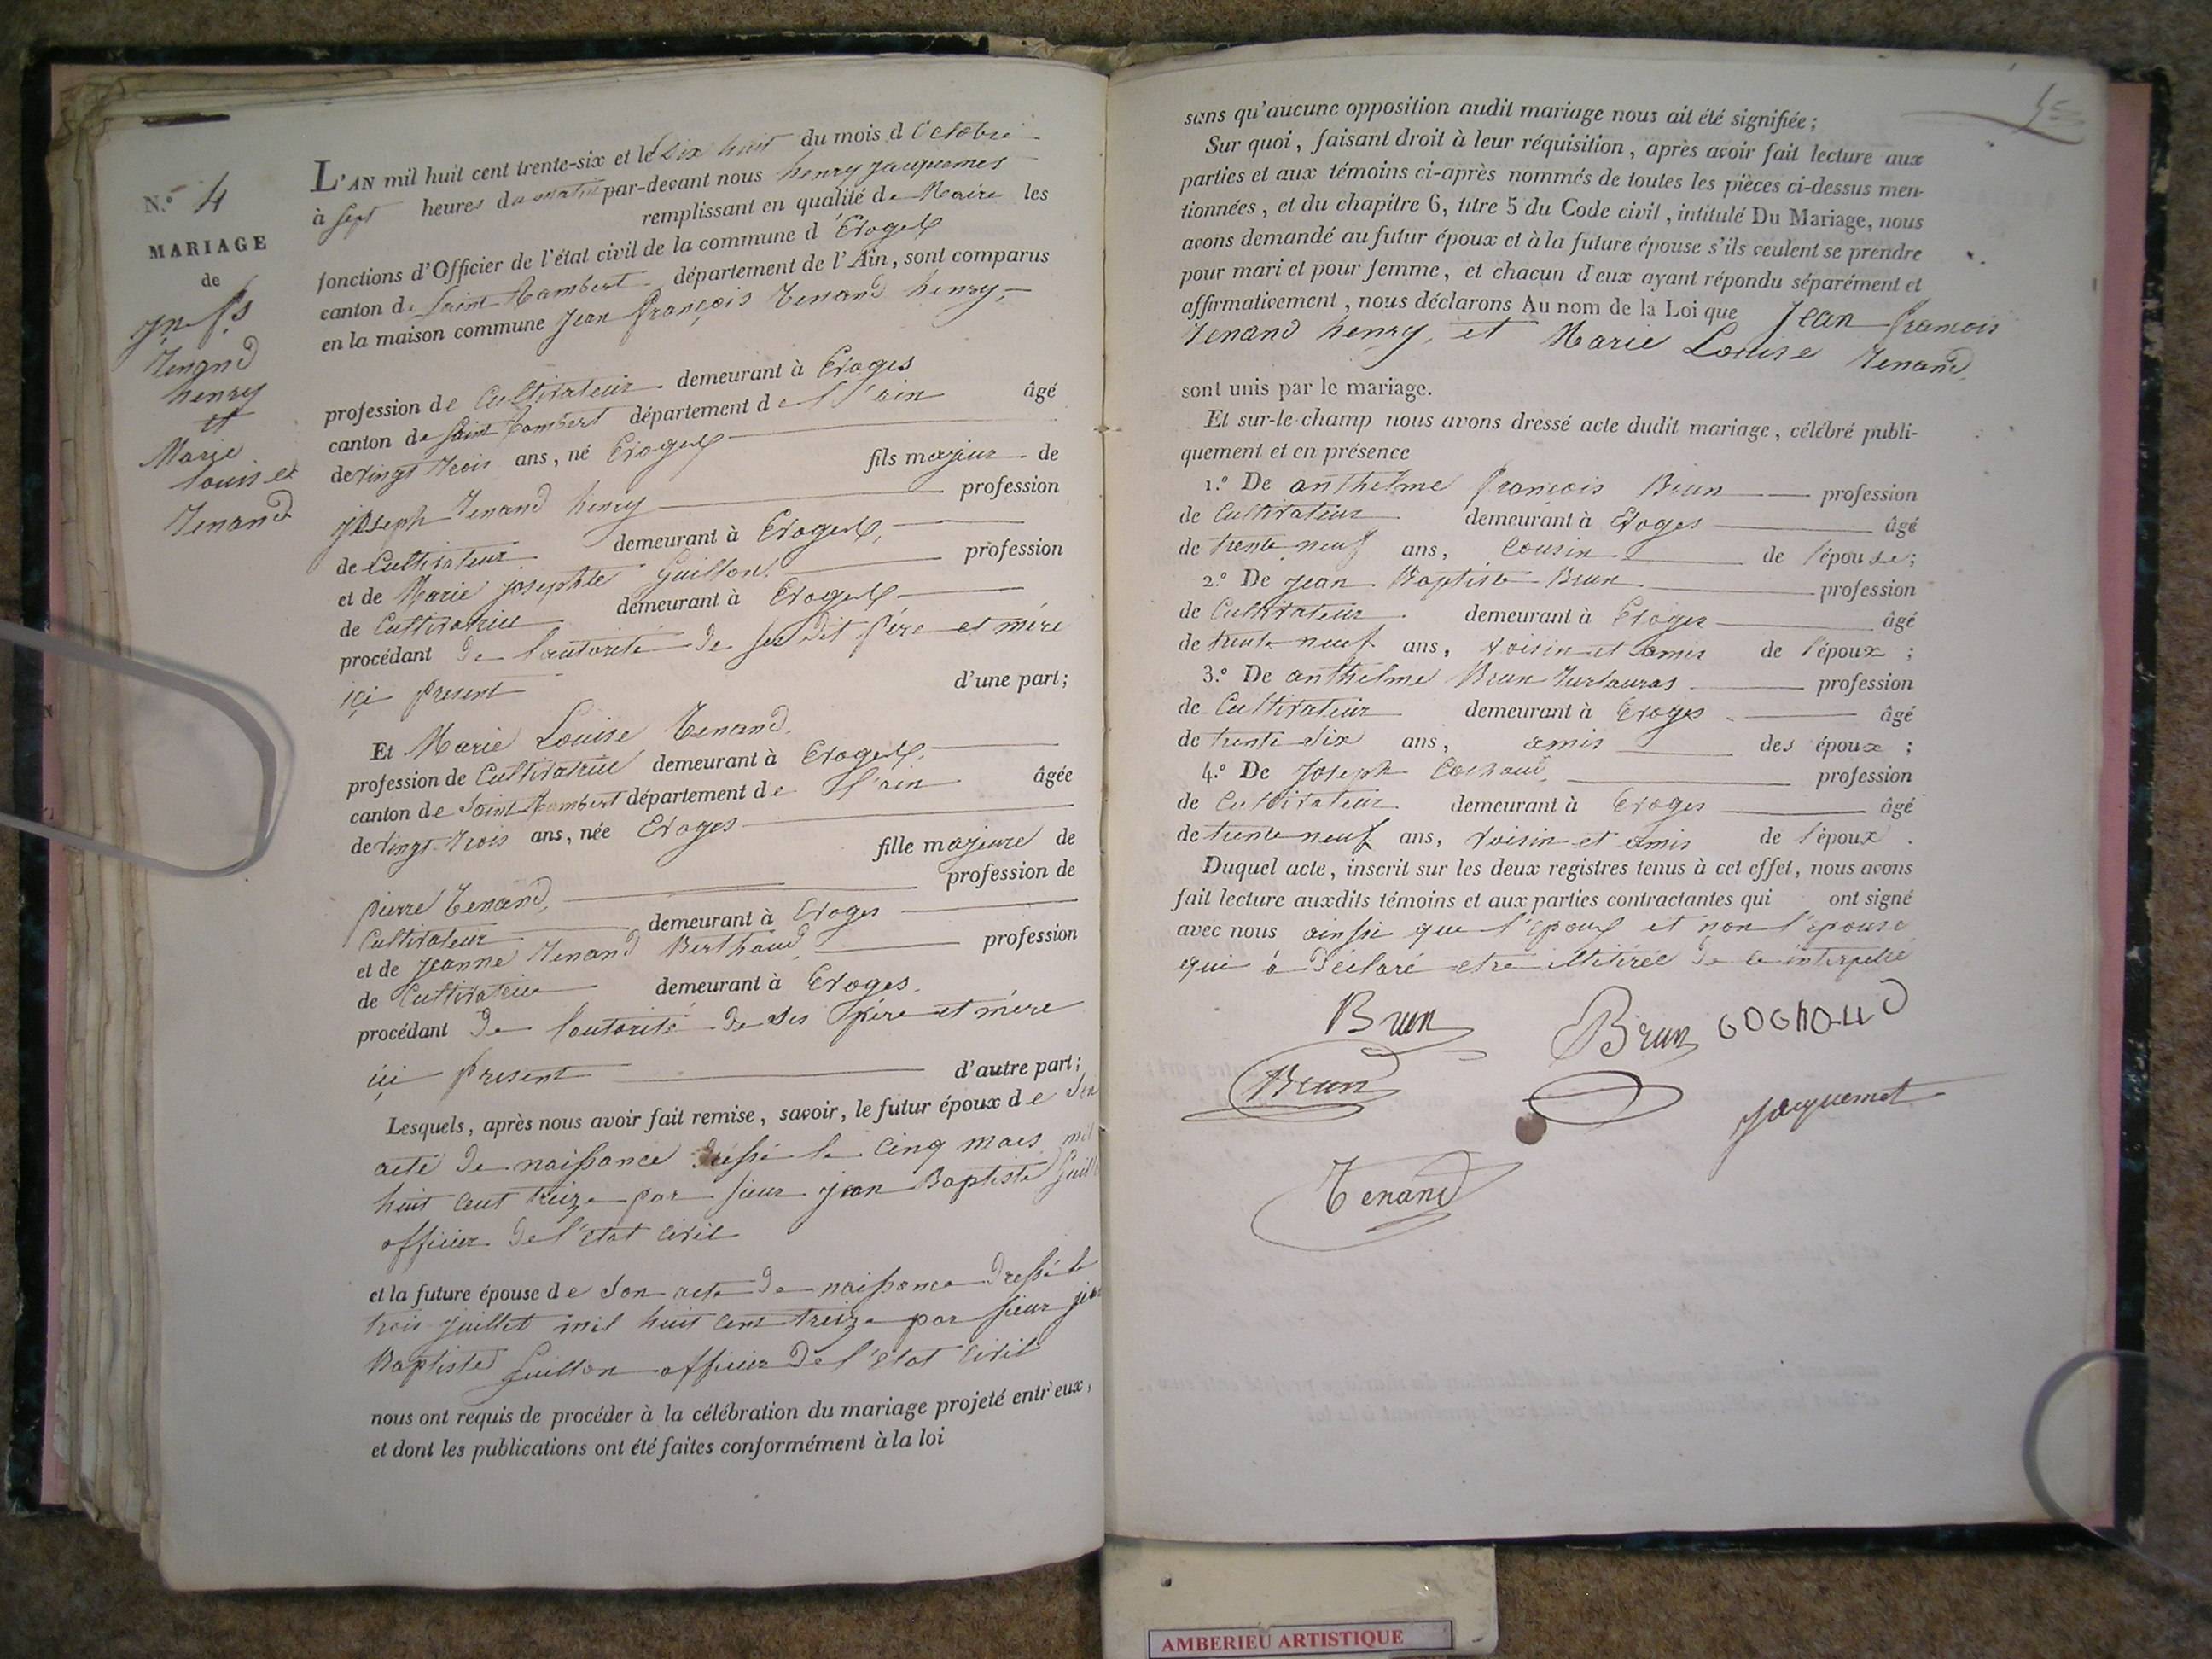 N.o 4
MARIAGE
de
Jn fs
Tenand
henry
et
Marie
louise
Tenand
L'AN mil huit cent trente-six et le Dix huit du mois d Octobre
à sept heures du matin par-devant nous henry Jacquemet
remplissant en qualité de Maire les
fonctions d'Officier de l'état civil de la commune d'Evoges
canton de Saint Rambert département de l'Ain, sont comparus
en la maison commune Jean françois Tenand henry,
profession de Cultivateur demeurant à Evoges
canton de Saint Rambert département de l'ain âgé
de vingt trois ans, né Evoges
fils majeur de
joseph Tenand henry profession
de Cultivateur demeurant à Evoges,
et de Marie josephte Guillon, profession
de Cultivatrice demeurant à Evoges
procédant de lautorité de ses dit père et mère
içi present d'une part;
Et Marie Louise Tenand,
profession de Cultivatrice demeurant à Evoges,
canton de Saint Rambert département de l'ain âgée
de vingt trois ans, née Evoges
fille majeure de
pierre Tenand, profession de
Cultivateur demeurant à Evoges
et de jeanne Tenand Berthaud, profession
de Cultivatrice demeurant à Evoges.
procédant de lautorité de ses père et mère
içi present d'autre part;
Lesquels, après nous avoir fait remise, savoir, le futur époux de son
acte de naissance dressé le cinq mars mil
huit cent treize par sieur jean Baptiste Guill
officier de l'état civil
et la future épouse de son acte de naissance dressé le
trois juillet mil huit cent treize par sieur jean
Baptiste Guillon officier de l'état civil
nous ont requis de procéder à la célébration du mariage projeté entr'eux,
et dont les publications ont été faites conformément à la loi
sans qu'aucune opposition audit mariage nous ait été signifiée;
Sur quoi, faisant droit à leur réquisition, après avoir fait lecture aux
parties et aux témoins ci-après nommés de toutes les pièces ci-dessus men-
tionnées, et du chapitre 6, titre 5 du Code civil, intitulé Du Mariage, nous
avons demandé au futur époux et à la future épouse s'ils veulent se prendre
pour mari et pour femme, et chacun d'eux ayant répondu séparément et
affirmativement, nous déclarons Au nom de la Loi que Jean francois
Tenand henry, et Marie Louise Tenand,
sont unis par le mariage.
Et sur-le-champ nous avons dressé acte dudit mariage, célébré publi-
quement et en présence
1.o De anthelme françois Brun profession
de Cultivateur demeurant à Evoges âgé
de trente neuf ans, Cousin de l'épouse;
2.o De jean Baptiste Brun profession
de Cultivateur demeurant à Evoges âgé
de trente neuf ans, voisin et amis de l'époux;
3.o De anthelme Brun profession
de Cultivateur demeurant à Evoges âgé
de trente six ans, amis des époux;
4.o De Joseph Cochaud, profession
de Cultivateur demeurant à Evoges âgé
de trente neuf ans, voisin et amis de l'époux.
Duquel acte, inscrit sur les deux registres tenus à cet effet, nous avons
fait lecture auxdits témoins et aux parties contractantes qui ont signé
avec nous ainsi que l'époux et non l'épouse
qui à déclaré etre illitirée de ce interpellé
Brun Brun
Brun
Jacquemet
Tenand
AMBERIEU ARTISTIQUE